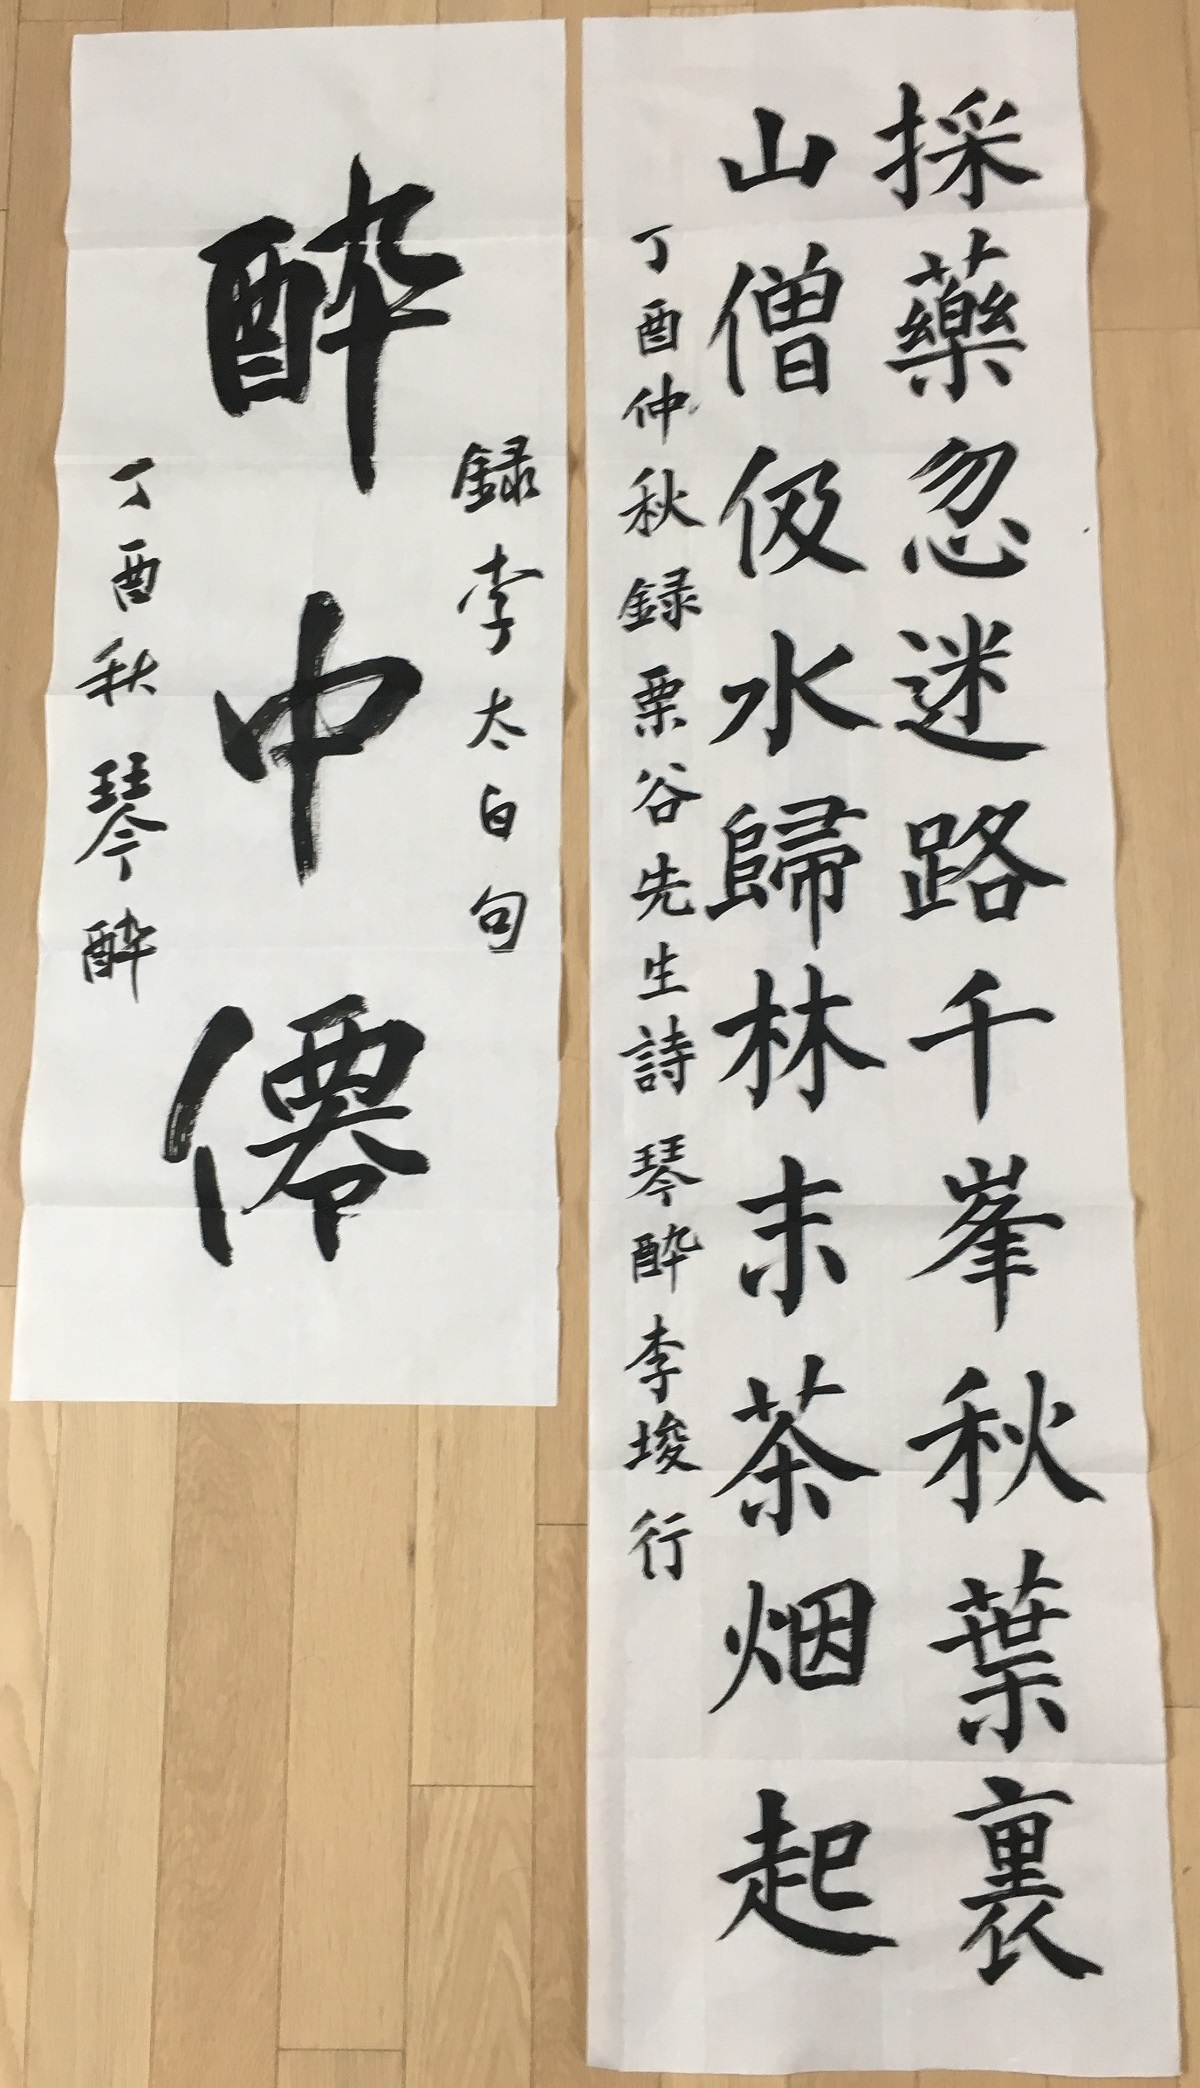 採藥忽迷路千峯秋葉裏
山僧伋水歸林末茶烟起
丁酉仲秋録栗谷先生詩 琴酔李埈行
録李太白句
酔中僊
丁酉秋 琴酔